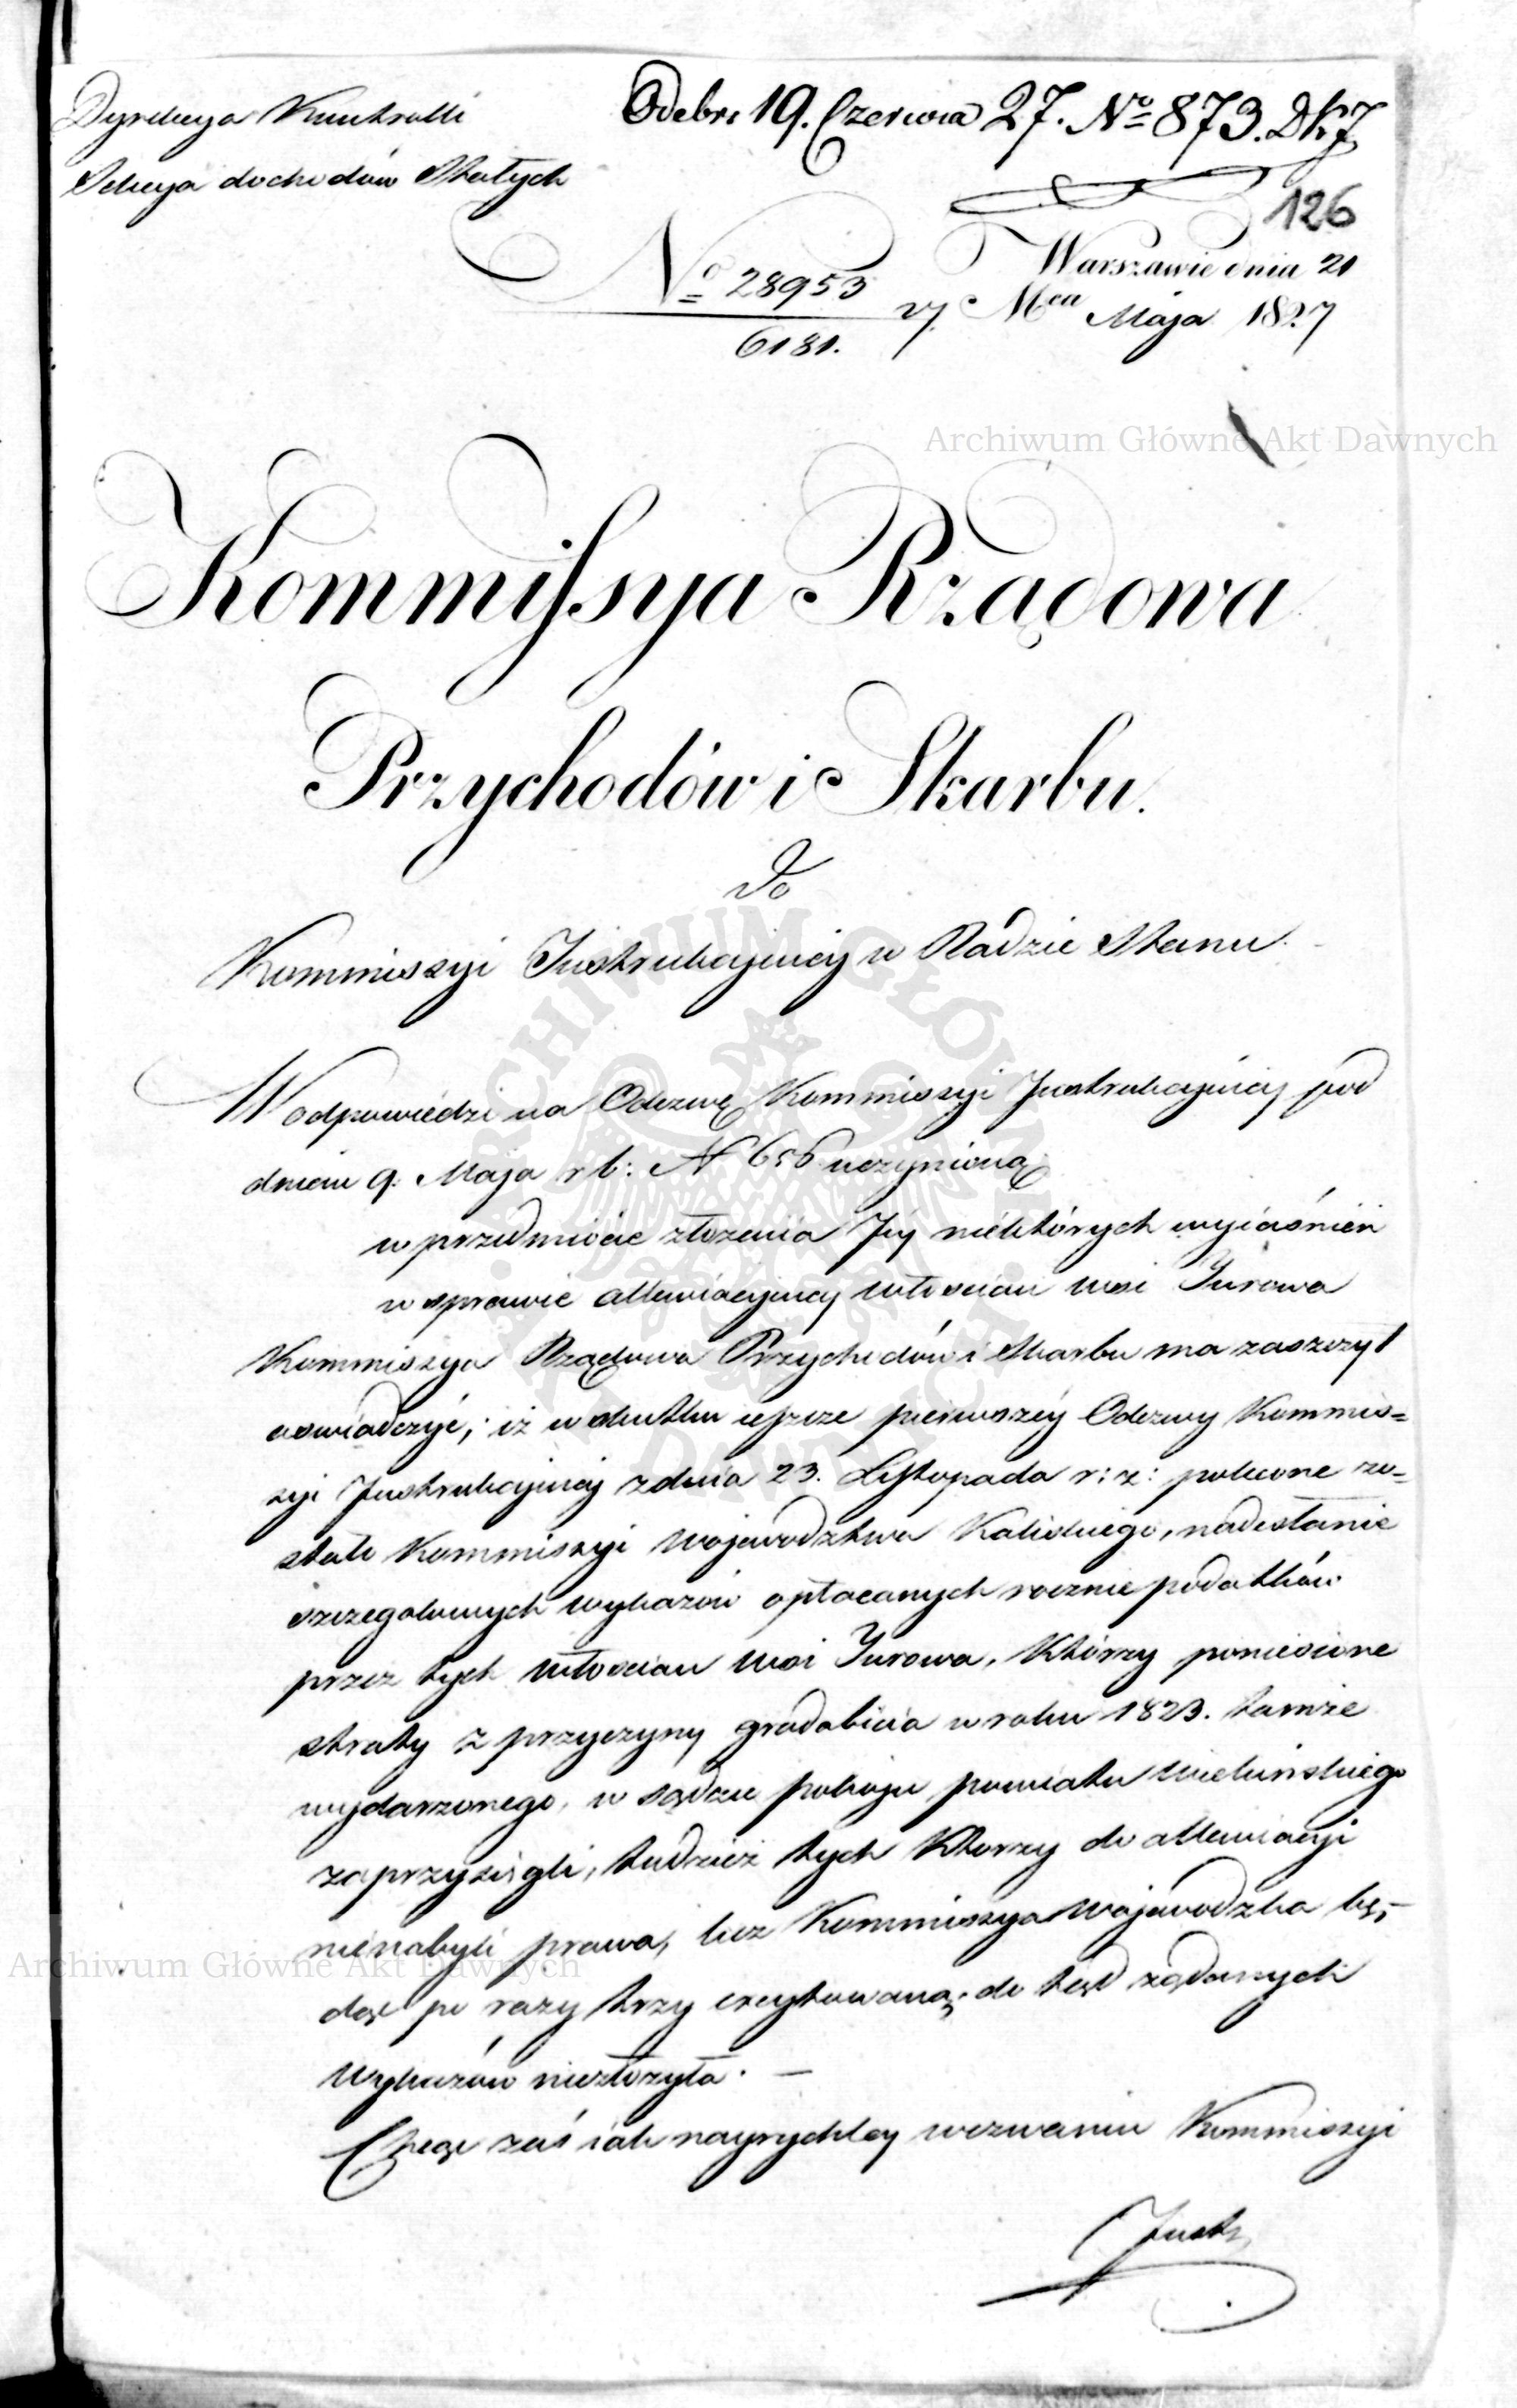 Dyrekcya Kontrolli
Sekcya dochodów Stałych
Odebr: 19. Czerwca 27. No 873. DKJ
126
No 28953
6181.
w Warszawie dnia 21
Mca Maja 1827
Archiwum Główne Akt Dawnych
Kommissya Rządowa
Przychodów i Skarbu.
Do
Kommissyi Instrukcyiney w Radzie Stanu.
W odpowiedzi na Odezwę Kommissyi Instrukcyiney pod
dniem 9. Maja r b: N 656 uczynioną
w przedmiocie złożenia Jey niektórych wyiaśnień
w sprawie allewiacyiney włościan wsi Jurowa
Kommissya Rządowa Przychodów i Skarbu ma zaszczyt
oswiadczyć, iż w skutku ieszcze pierwszéy Odezwy Kommis=
syi Instrukcyiney z dnia 23. Listopada r: z: polecone zo=
stało Kommissyi Województwa Kaliskiego, nadesłanie
szczegołowych wykazów opłacanych rocznie podatków
przez tych włościan wsi Jurowa, którzy poniesione
straty z przyczyny gradobicia w roku 1823. tamże
wydarzonego, w sądzie pokoju powiatu Wieluńskiego
zaprzysięgli, tudzież tych którzy do allewiacyi
nienabyli prawa, lecz Kommissya Woiewodzka bę=
dąc po razy trzy excytowaną, do tąd żądanych
wykazów niezłożyła. —
Chcąc zaś iak nayrychley wezwaniu Kommissyi
Instr
Archiwum Główne Akt Dawnych
ARCHIWUM GŁÓWNE AKT DAWNYCH